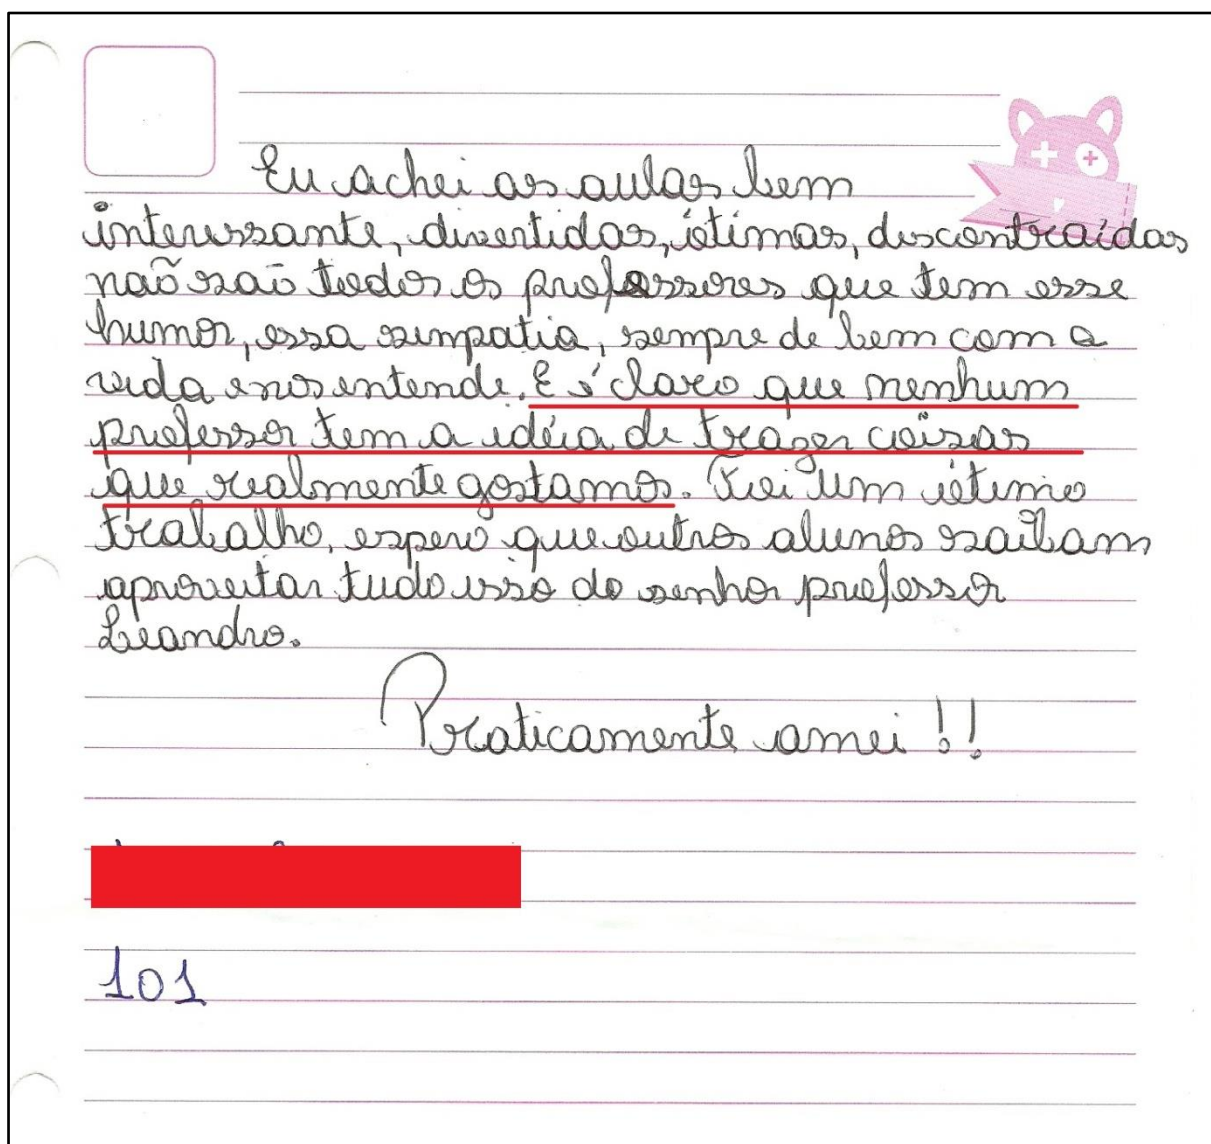 Eu achei as aulas bem
interessante, divertidas, ótimas, descontraídas
não são todos os professores que tem esse
humor, essa simpatia, sempre de bem com a
vida e nos entende. E é claro que nenhum
professor tem a idéia de trazer coisas
que realmente gostamos. Foi um ótimo
trabalho, espero que outros alunos saibam
aproveitar tudo isso do senhor professor
Leandro.
Praticamente amei!!
101